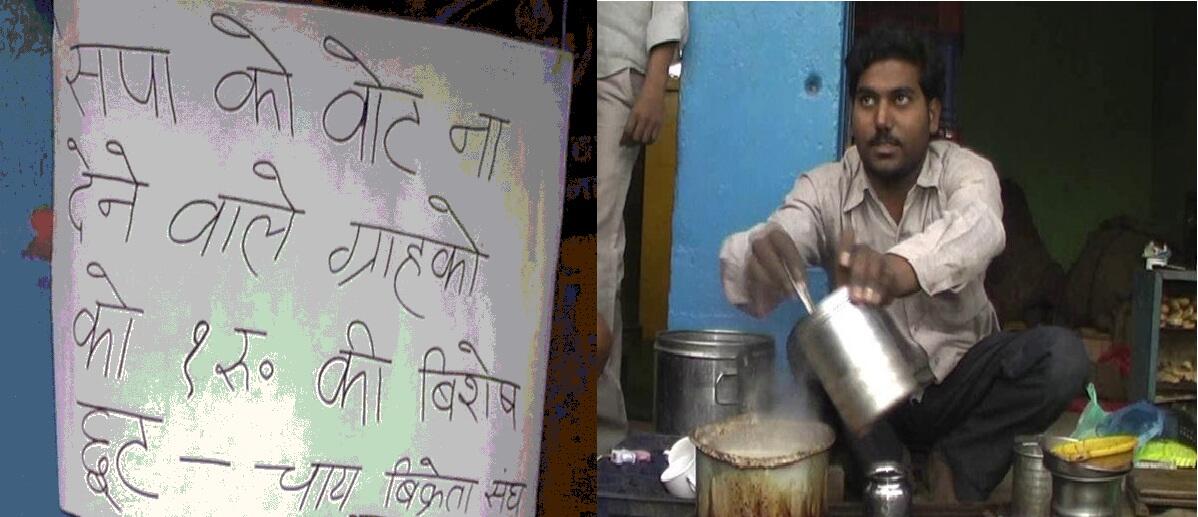 सपा को वोट ना
देने वाले ग्राहको
को १ रु॰ की बिशेष
छूट — चाय बिक्रेता संघ